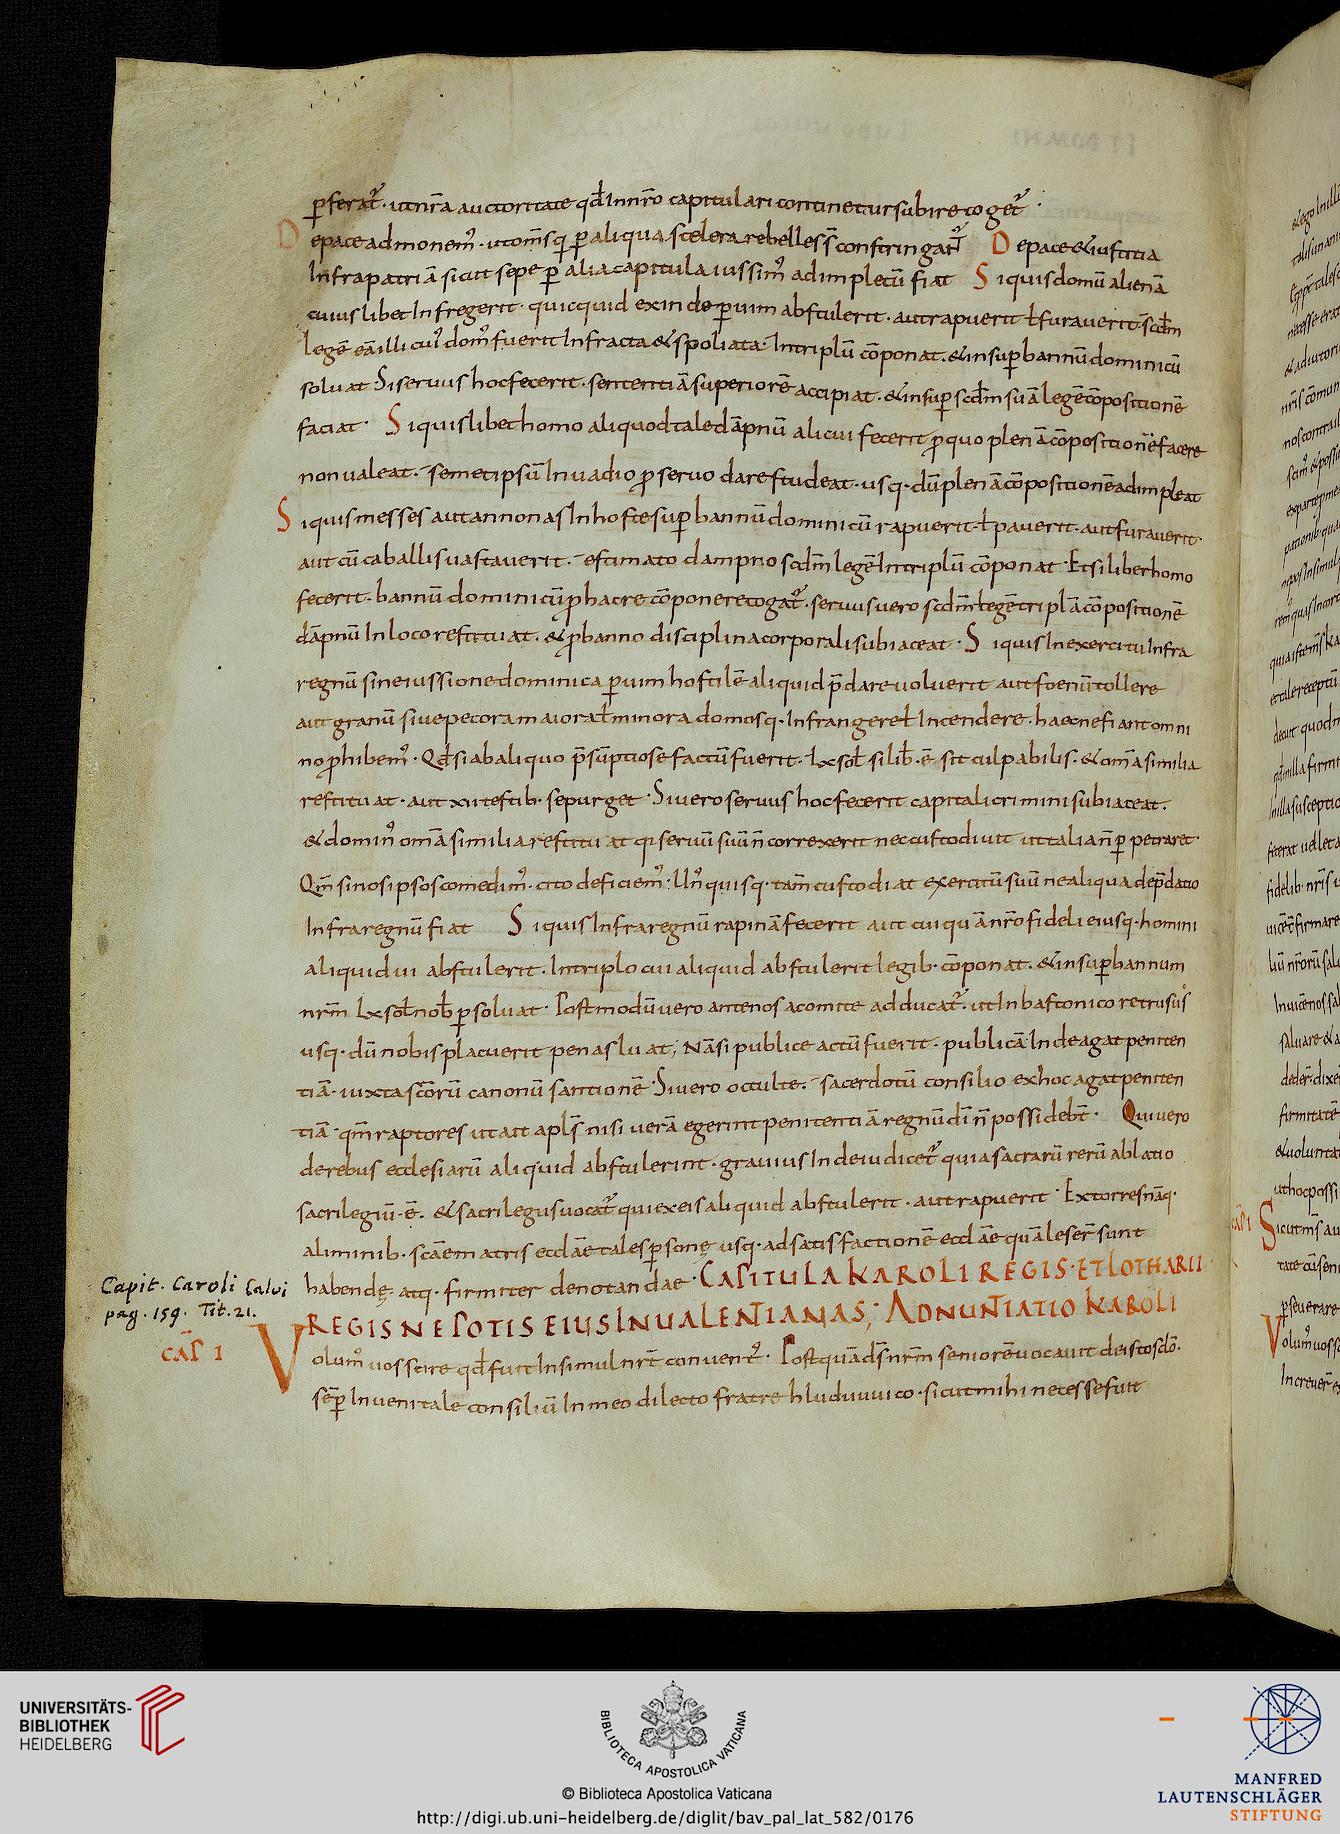 ꝑferat᷑. ut nr̄a auctoritate qđ In nr̄o capitulari continetur subire coget᷑.
De pace admonem᷒. ut om̄s qi ꝑ aliqua scelera rebelles s̄t constringant᷑ De pace & iustitia
Infra patriā sicut sepe ꝑ alia capitula iussim᷒ adimpletū fiat Si quis domū alienā
cuiuslibet Infregerit. quicquid exinde ꝑ uim abstulerit. aut rapuerit ł furauerit. scdm̄
legē eā illi cui᷒ dom᷒ fuerit Infracta & spoliata. In triplū cōponat. & insuꝑ bannū dominicū
soluat. Si seruus hoc fecerit. sententiā superiorē accipiat. & insuꝑ scdm̄ suā legē cōpositionē
faciat. Si quis liber homo aliquod tale dāpnū alicui fecerit ꝓ quo plenā cōpositionē facere
non ualeat. semetipsū In uadio ꝓ seruo dare studeat. usq. dū plenā cōpositionē adimpleat
Si quis messes aut annonas In hoste suꝑ bannū dominicū rapuerit ł pauerit. aut furauerit.
aut cū caballis uastauerit. estimato dampno scdm̄ legē In triplū cōponat. Et si liber homo
fecerit. bannū dominicū ꝓ hac re cōponere cogat᷑. seruus uero scdm̄ legē triplā cōpositionē
dāpnū In loco restituat. & ꝓ banno disciplina corporali subiaceat. Si quis In exercitu Infra
regnū sine iussione dominica ꝑ uim hostilē aliquid p̄dare uoluerit aut foenū tollere
aut granū siue pecora maiora ł minora domosq. Infrangere ł Incendere. haec ne fiant omni
no ꝓhibem᷒. Qđ si ab aliquo p̄sūptiose factū fuerit. lx sol si lib ē. sit culpabilis. & om̄a similia
restituat. aut xii testib. se purget. Si uero seruus hoc fecerit capitali crimini subiaceat.
& domin᷒ om̄a similia restituat qi seruū suū n̄ correxerit nec custodiuit ut talia n̄ ꝑpetraret.
Qm̄ si nos ipsos comedim᷒. cito deficiem᷒. Un᷒quisq. tam̄ custodiat exercitū suū ne aliqua dep̄datio
Infra regnū fiat Si quis Infra regnū rapinā fecerit aut cuiquā nr̄o fideli eiusq. homini
aliquid ui abstulerit. In triplo cui aliquid abstulerit legib. cōponat. & insuꝑ bannum
nrm̄ lx sol nob ꝑsoluat. Postmodū uero ante nos a comite adducat᷑. ut In bastonico retrusus
usq. dū nobis placuerit penas luat; Nā si publice actū fuerit. publicā Inde agat peniten
tiā. iuxta sc̄orū canonū sanctionē. Si uero occulte. sacerdotū consilio ex hoc agat peniten
tiā. qm̄ raptores ut ait apl̄s nisi uerā egerint penitentiā regnū dī n̄ possidebt̄. Qui uero
de rebus ecclesiarū aliquid abstulerint. grauius Inde iudicet᷑ quia sacrarū rerū ablatio
sacrilegiū ē. & sacrilegus uocat᷑ qui ex eis aliquid abstulerit. aut rapuerit. Extorres nāq.
a liminib. sc̄ae matris eccl̄ae tales ꝑsonę usq. ad satisfactionē eccl̄ae quā leser̄ sunt
habendę. atq. firmiter denotandae. CAPITULA KAROLI REGIS. ET LOTHARII
REGIS NEPOTIS EIUS IN UALENTIANAS; ADNUNTIATIO KAROLI
Capit. Caroli Calvi
pag. 159. Tit. 21.
CAP̄ I
Volum᷒ uos scire qđ fuit In simul nr̄t conuent᷒. Postquā d̄s nrm̄ seniorē uocauit de isto sclo.
sēꝑ Inueni tale consiliū In meo dilecto fratre hluduuuico. sicut mihi necesse fuit
UNIVERSITÄTS-
BIBLIOTHEK
HEIDELBERG
BIBLIOTECA APOSTOLICA VATICANA
© Biblioteca Apostolica Vaticana
http://digi.ub.uni-heidelberg.de/diglit/bav_pal_lat_582/0176
MANFRED
LAUTENSCHLÄGER
STIFTUNG